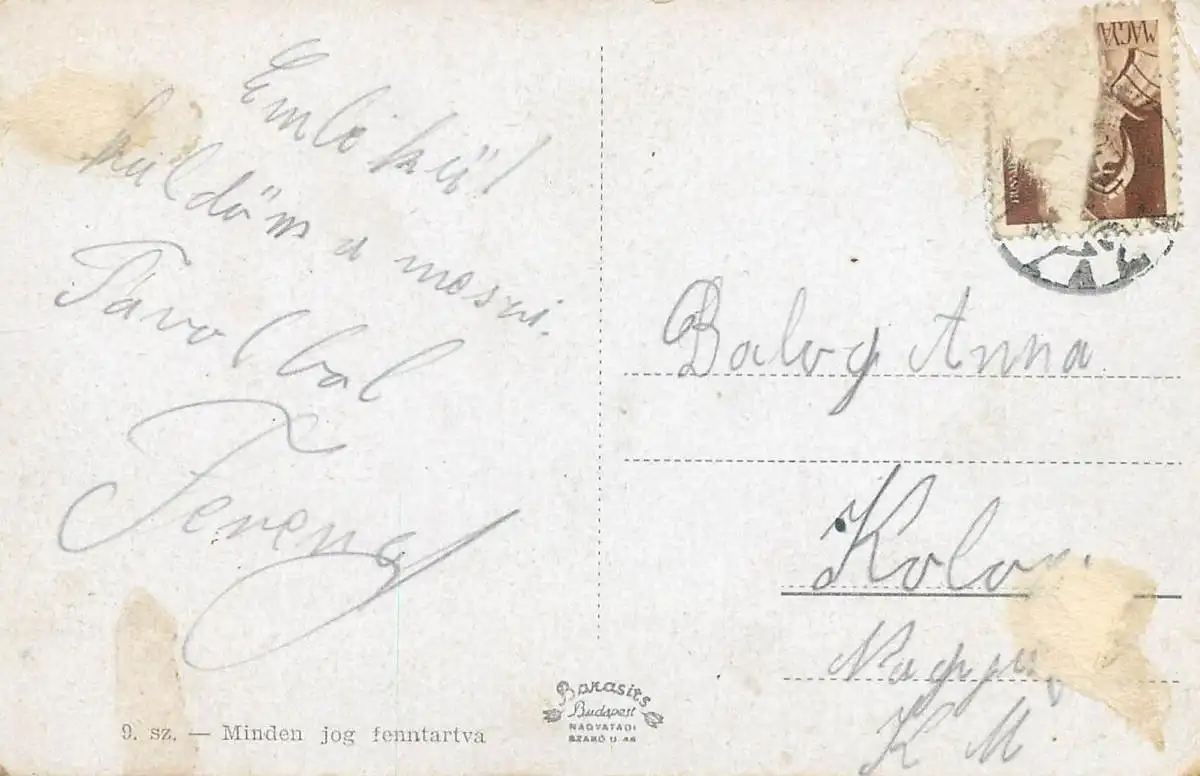 Emlékűl
küldöm a meszi.
Távolbol
Ferenc
9. sz. — Minden jog fenntartva
Barasits
Budapest
NAGYATÁDI
SZABÓ U 46
Balog Anna
K M